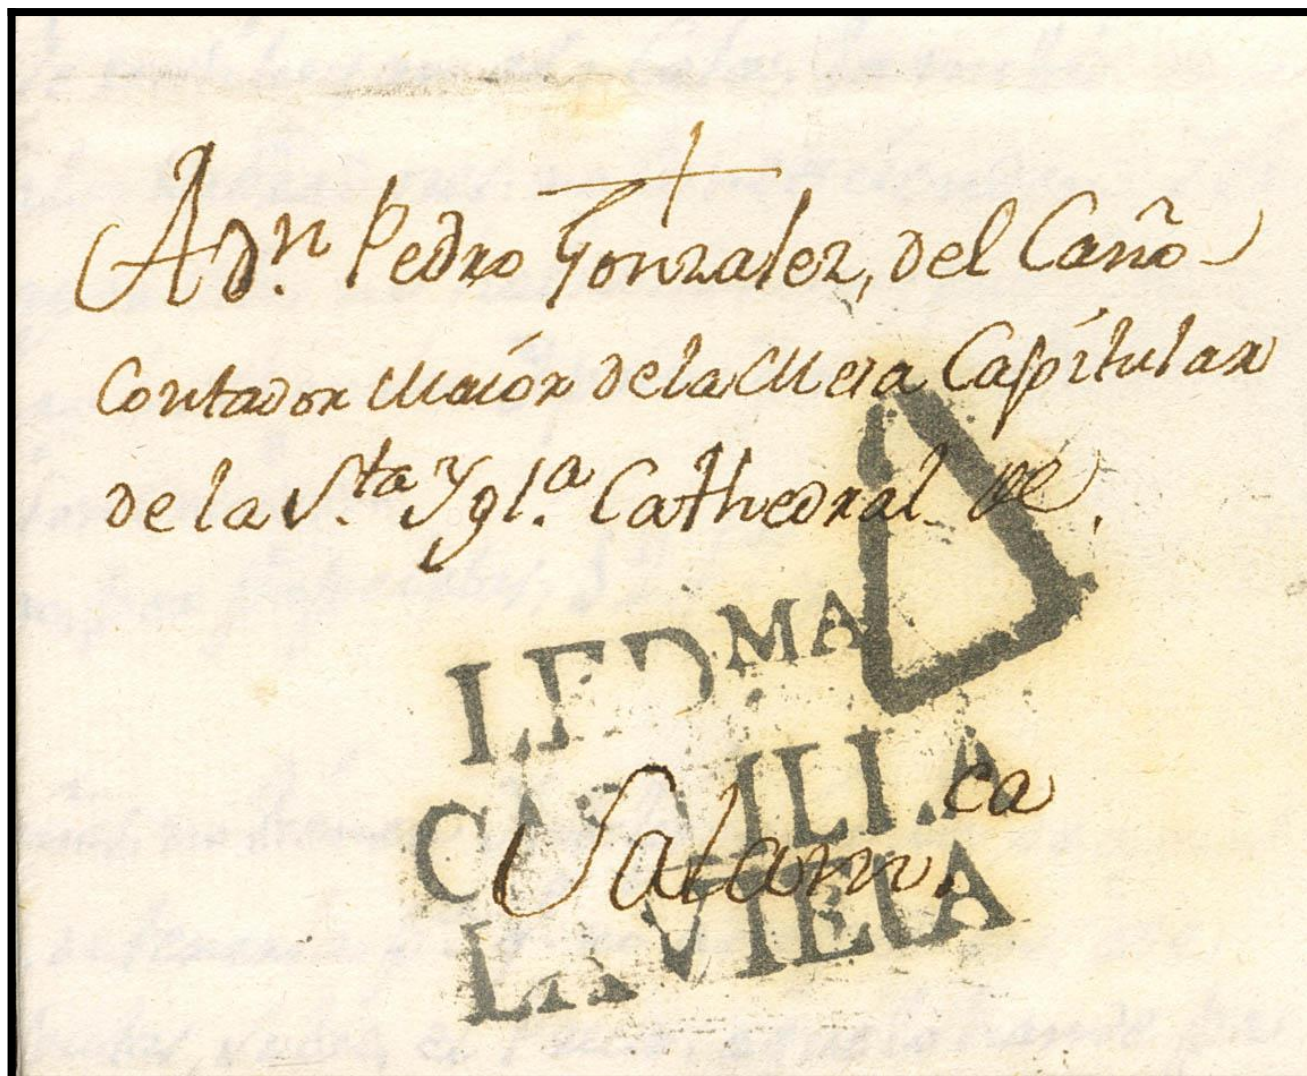 A Dⁿ. Pedro Gonzalez, del Caño
Contador Maíor de la Mesa Capítular
de la Sᵗᵃ. Yglᵃ. Cathedral de.
LEDᴹᴬ
CASTILLA
LA VIEIA
Salamᶜᵃ.